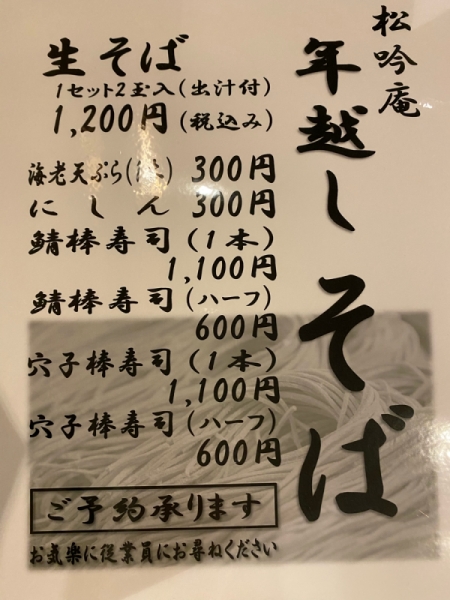 松吟庵
年越しそば
生そば
1セット2玉入(出汁付)
1,200円(税込み)
海老天ぷら( ) 300円
にしん 300円
鯖棒寿司(1本)
1,100円
鯖棒寿司(ハーフ)
600円
穴子棒寿司(1本)
1,100円
穴子棒寿司(ハーフ)
600円
ご予約承ります
お気楽に従業員にお尋ねください